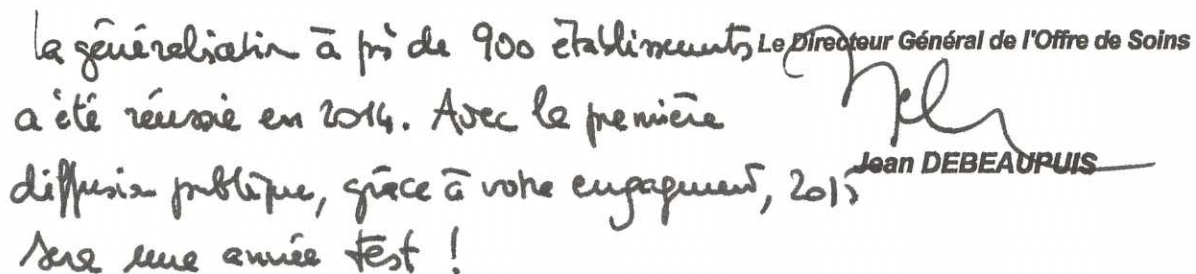 la généralisation à près de 900 établissements
a été réussie en 2014. Avec la première
diffusion publique, grâce à votre engagement, 2015
sera une année test !
Le Directeur Général de l'Offre de Soins
Jean DEBEAUPUIS